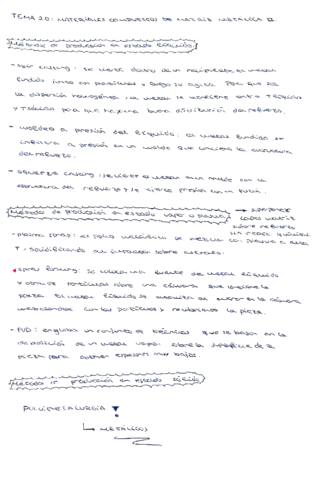 TEMA 20: MATERIALES COMPUESTOS DE MATRIZ METÁLICA II.
Métodos de producción en estado líquido
- stir casting: se mete dentro de un recipiente el metal
fundido junto con partículas y luego se agita. Para que sea
la dispersión homogénea la mezcla se mantiene entre Tª líquidus
y Tª sólidus para que haya una buena distribución del refuerzo.
- moldeo a presión del líquido: el metal fundido se
infiltra a presión en un molde que contiene la estructura
del refuerzo.
- squeeze casting: se vierte el metal en un molde con la
estructura del refuerzo y se ejerce presión con un pistón.
Métodos de producción en estado vapor o plasma → 
capas matriz
sobre refuerzo
- plasma spray: el polvo metálico se mezcla con plasma a alta
Tª solidificando al impactar sobre
- spray forming: se coloca una fuente de metal líquido
y otra de partículas sobre una cámara que contiene la
pieza. El metal líquido se atomiza al entrar en la cámara
mezclándose con las partículas y recubriendo la pieza.
- PVD: engloba un conjunto de técnicas que se basan en la
deposición de un metal vapor sobre la superficie de la
pieza para obtener espesores muy bajos.
Métodos de producción en estado sólido
PULVIMETALURGIA
↳ METÁLICOS